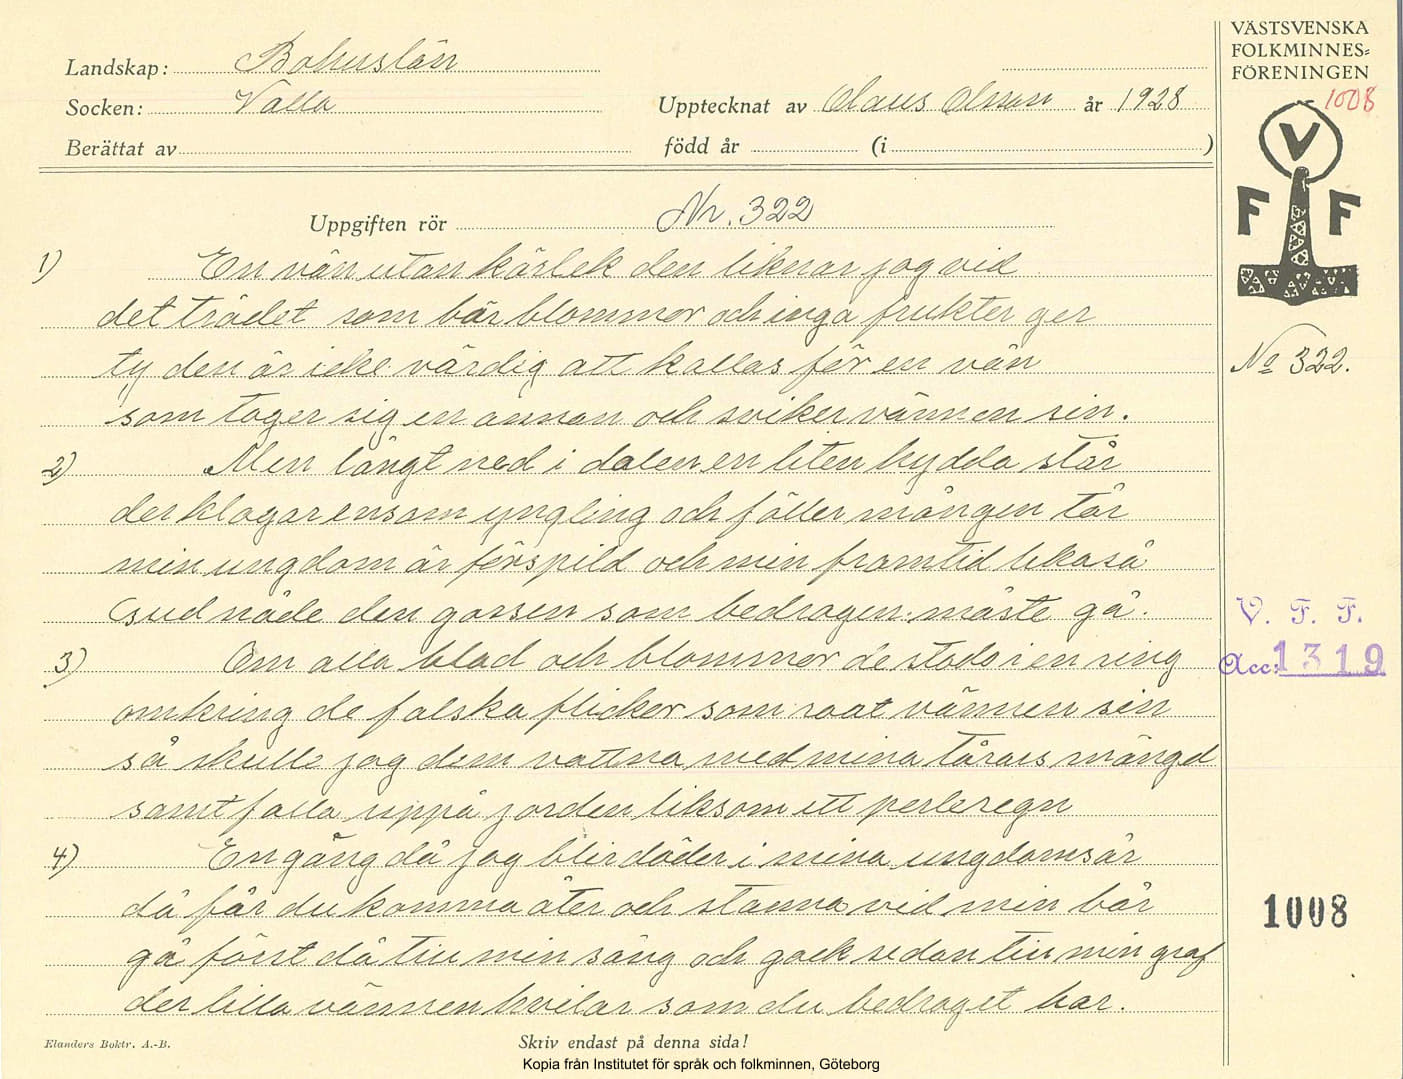 VÄSTSVENSKA
FOLKMINNES=
FÖRENINGEN
1008
V
F F
Landskap: Bohuslän
Socken: Valla
Upptecknat av Claus Olsson år 1928
Berättat av
född år (i )
Uppgiften rör Nr. 322
1) En vän utan kärlek den liknar jag vid
det trädet som bär blommor och inga frukter ger
ty den är icke värdig att kallas för en vän
som tager sig en annan och sviker vännen sin.
2) Men långt ned i dalen en liten hydda står
der klagar ensam yngling och fäller mången tår
min ungdom är förspild och min framtid likaså
Gud nåde den gossen som bedragen måste gå.
3) Om alla blad och blommor de stodo i en ring
omkring de falska flickor som raat vännen sin
så skulle jag dem vattna med mina tårars mängd
samt falla uppå jorden liksom ett perleregn
4) En gång då jag blir döder i mina ungdomsår
då får du komma åter och stanna vid min bår
gå först då till min säng och gack sedan till min graf
der lilla vännen hvilar som du bedraget har.
No 322.
V. F. F.
Acc: 1319
1008
Elanders Boktr. A.-B.
Skriv endast på denna sida!
Kopia från Institutet för språk och folkminnen, Göteborg